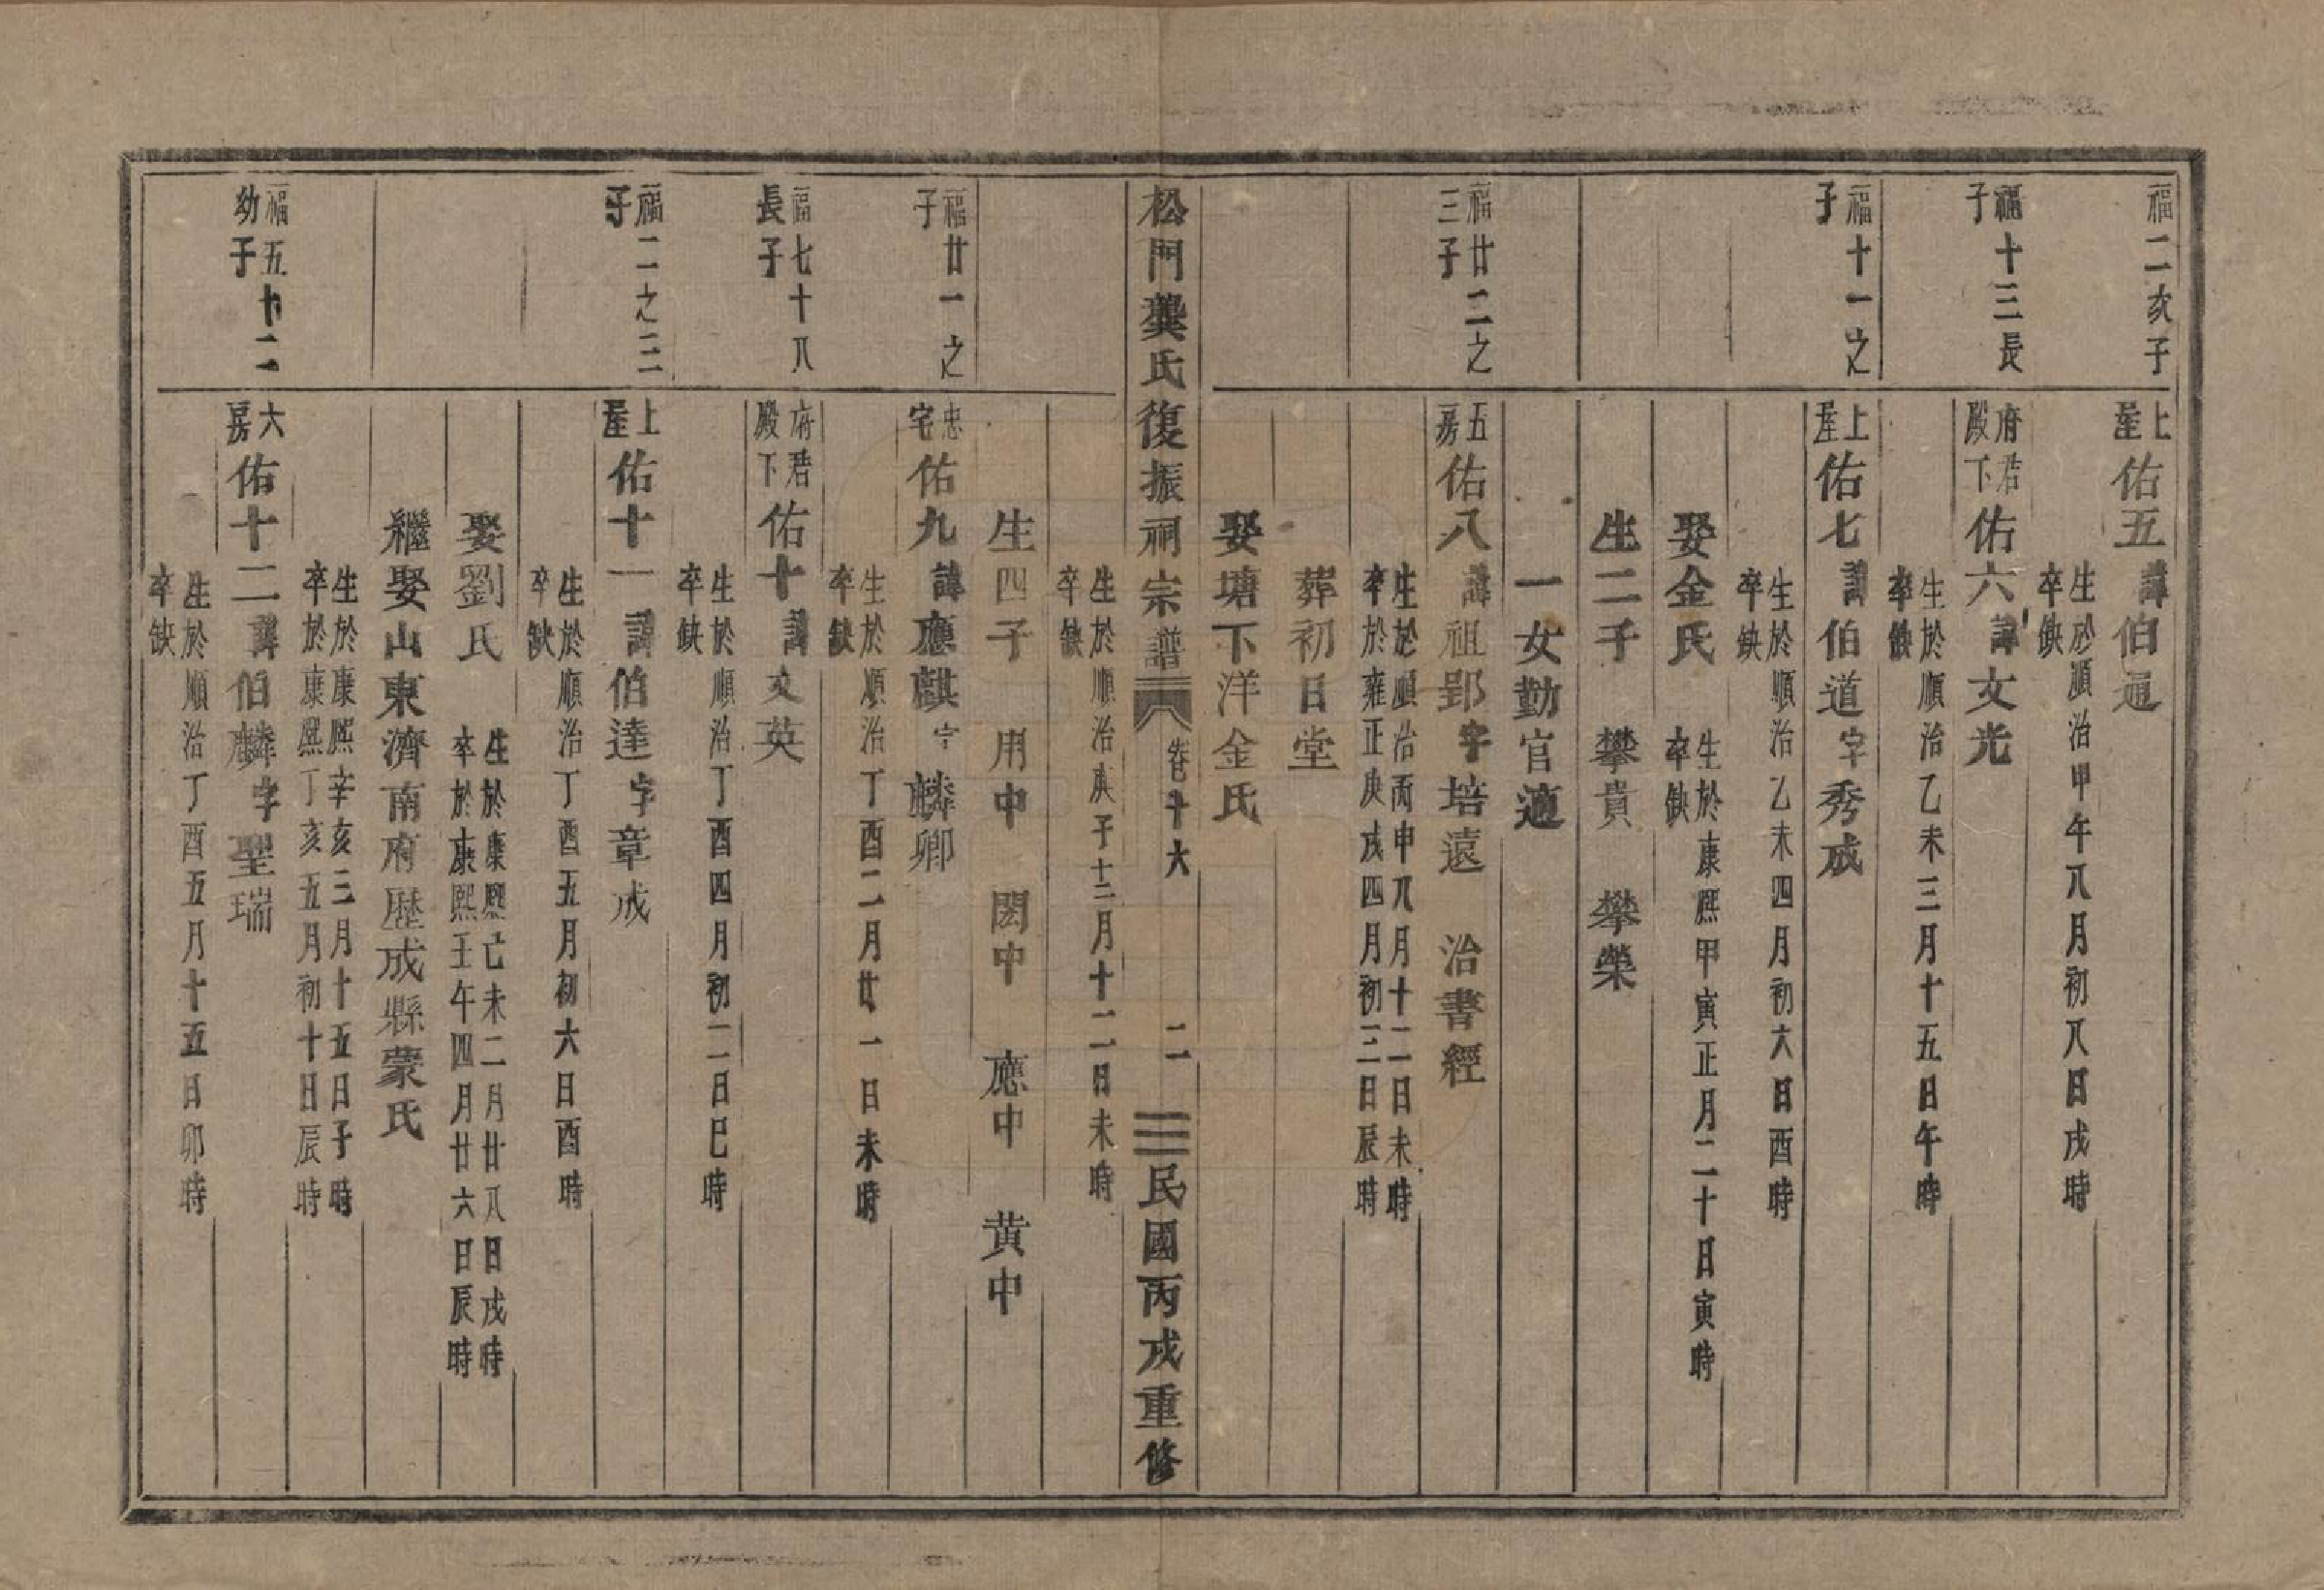 福二次子
上屋佑五諱伯通
生於順治甲午八月初八日戌時
卒缺
福十三長子
府君殿下佑六諱文光
生於順治乙未三月十五日午時
卒缺
福十一之子
上屋佑七諱伯道字秀成
生於順治乙未四月初六日酉時
卒缺
娶金氏
生於康熙甲寅正月二十日寅時
卒缺
生二子 攀貴 攀榮
一女勤官適
福廿二之三子
五房佑八諱祖郢字培遠 治書經
生於順治丙申八月十二日未時
卒於雍正庚戌四月初三日辰時
葬初日堂
娶塘下洋金氏
松門龔氏復振祠宗譜 卷十六 二 民國丙戌重修
生於順治庚子十二月十二日未時
卒缺
生四子 用中 閎中 應中 黄中
福廿一之子
忠宅佑九諱應麒字麟卿
生於順治丁酉二月廿一日未時
卒缺
福七十八長子
府君殿下佑十諱文英
生於順治丁酉四月初二日巳時
卒缺
福二之三子
上屋佑十一諱伯達字章成
生於順治丁酉五月初六日酉時
卒缺
娶劉氏
生於康熙己未二月廿八日戌時
卒於康熙壬午四月廿六日辰時
繼娶山東濟南府歷成縣蒙氏
生於康熙辛亥三月十五日子時
卒於康熙丁亥五月初十日辰時
福五十二幼子
六房佑十二諱伯麟字聖瑞
生於順治丁酉五月十五日卯時
卒缺